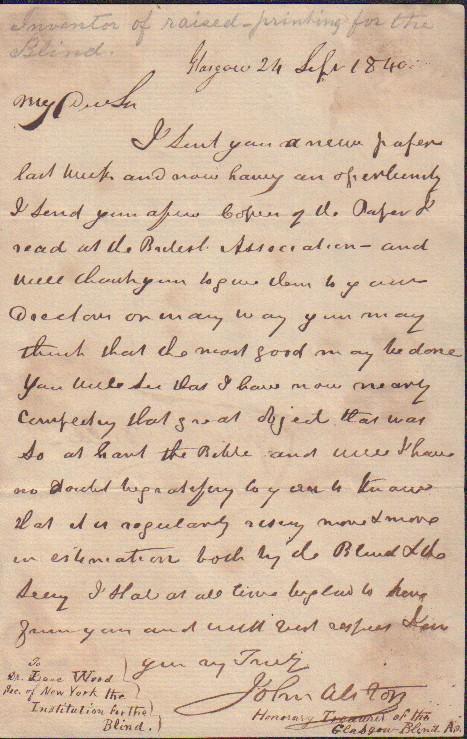 Inventor of raised-printing for the
Blind.
Glasgow 24 Sept 1840
My Dear Sir
I sent you a news paper
last week and now having an opertunity
I send you a few Copies of the Paper I
read at the British Association - and
will thank you to give them to your
Directors or in any way you may
think that the most good may be done
You will see that I have now nearly
compleated that great object that was
so at heart the Bible and will I have
no doubt be gratefying to you to know
that it is regularly rising more & more
in estimation both by the Blind & the
Seeing I shal at all time be glad to hear
from you and with best respect I am
you my Truly
John Alston
Honorary Treasurer of the
Glasgow Blind As.
To
Dr. Isac Wood
Sec. of New York the
Institution for the
Blind.